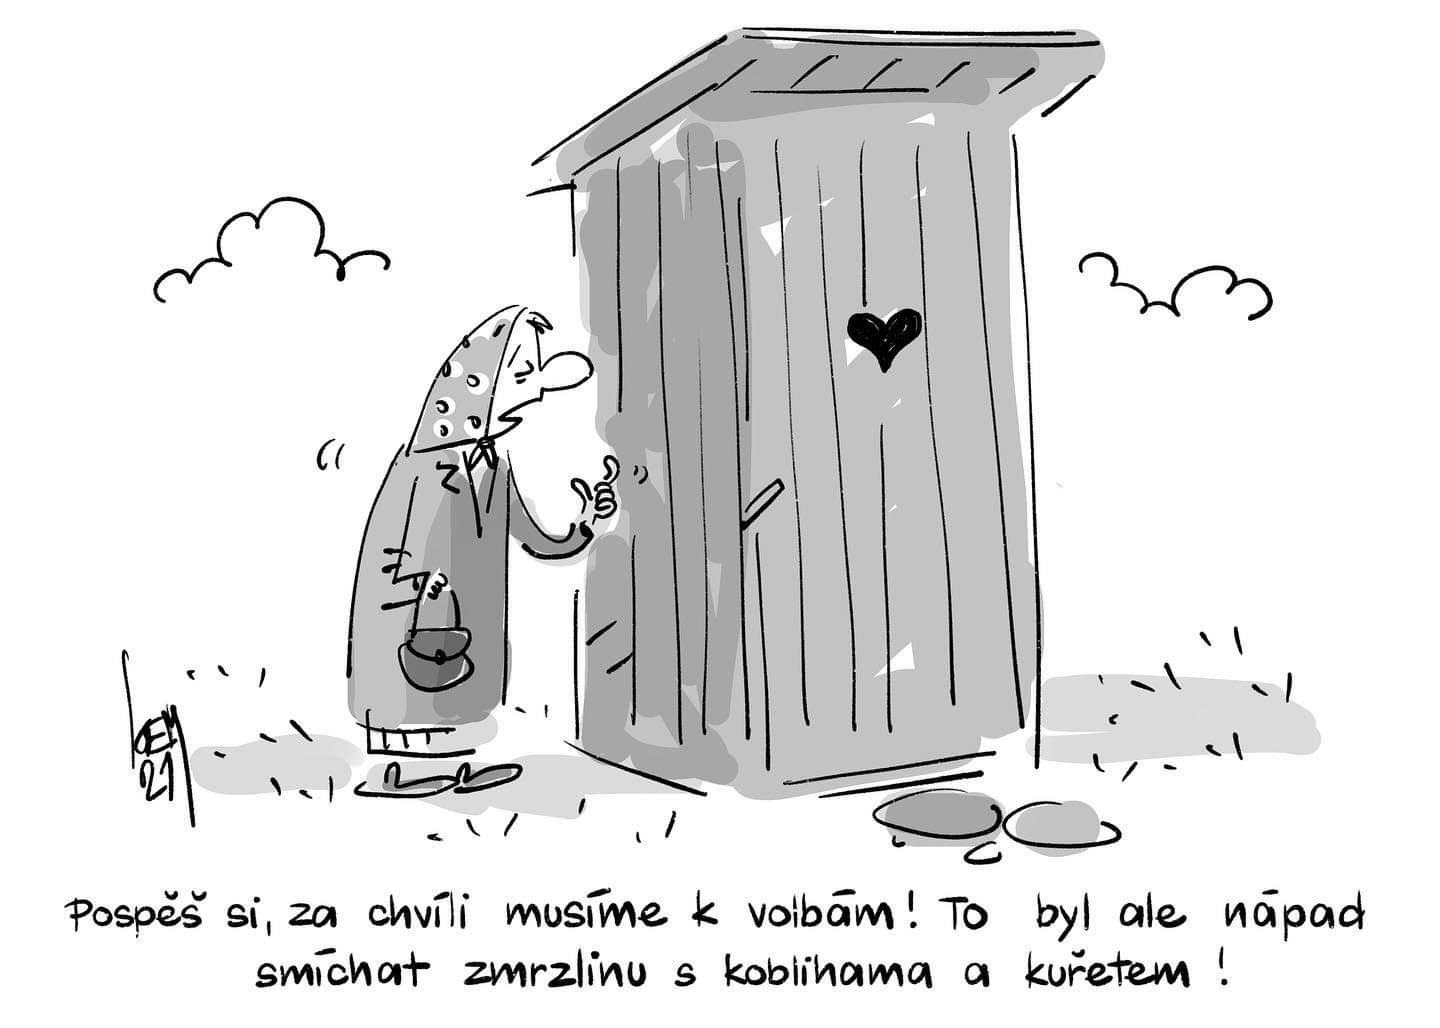 Pospěš si, za chvíli musíme k volbám! To byl ale nápad
smíchat zmrzlinu s koblihama a kuřetem!
21